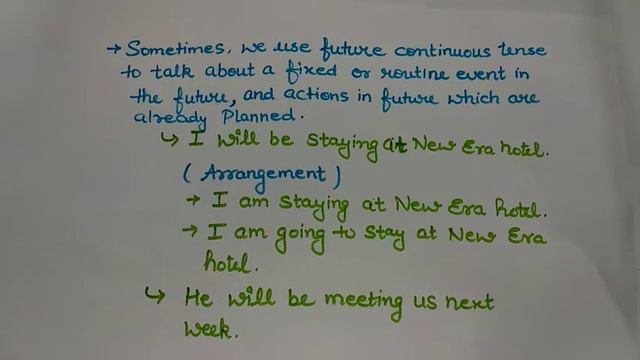 → Sometimes, we use future continuous tense
to talk about a fixed or routine event in
the future, and actions in future which are
already Planned.
↳ I will be staying at New Era hotel.
(Arrangement)
→ I am staying at New Era hotel.
→ I am going to stay at New Era
hotel.
↳ He will be meeting us next
week.